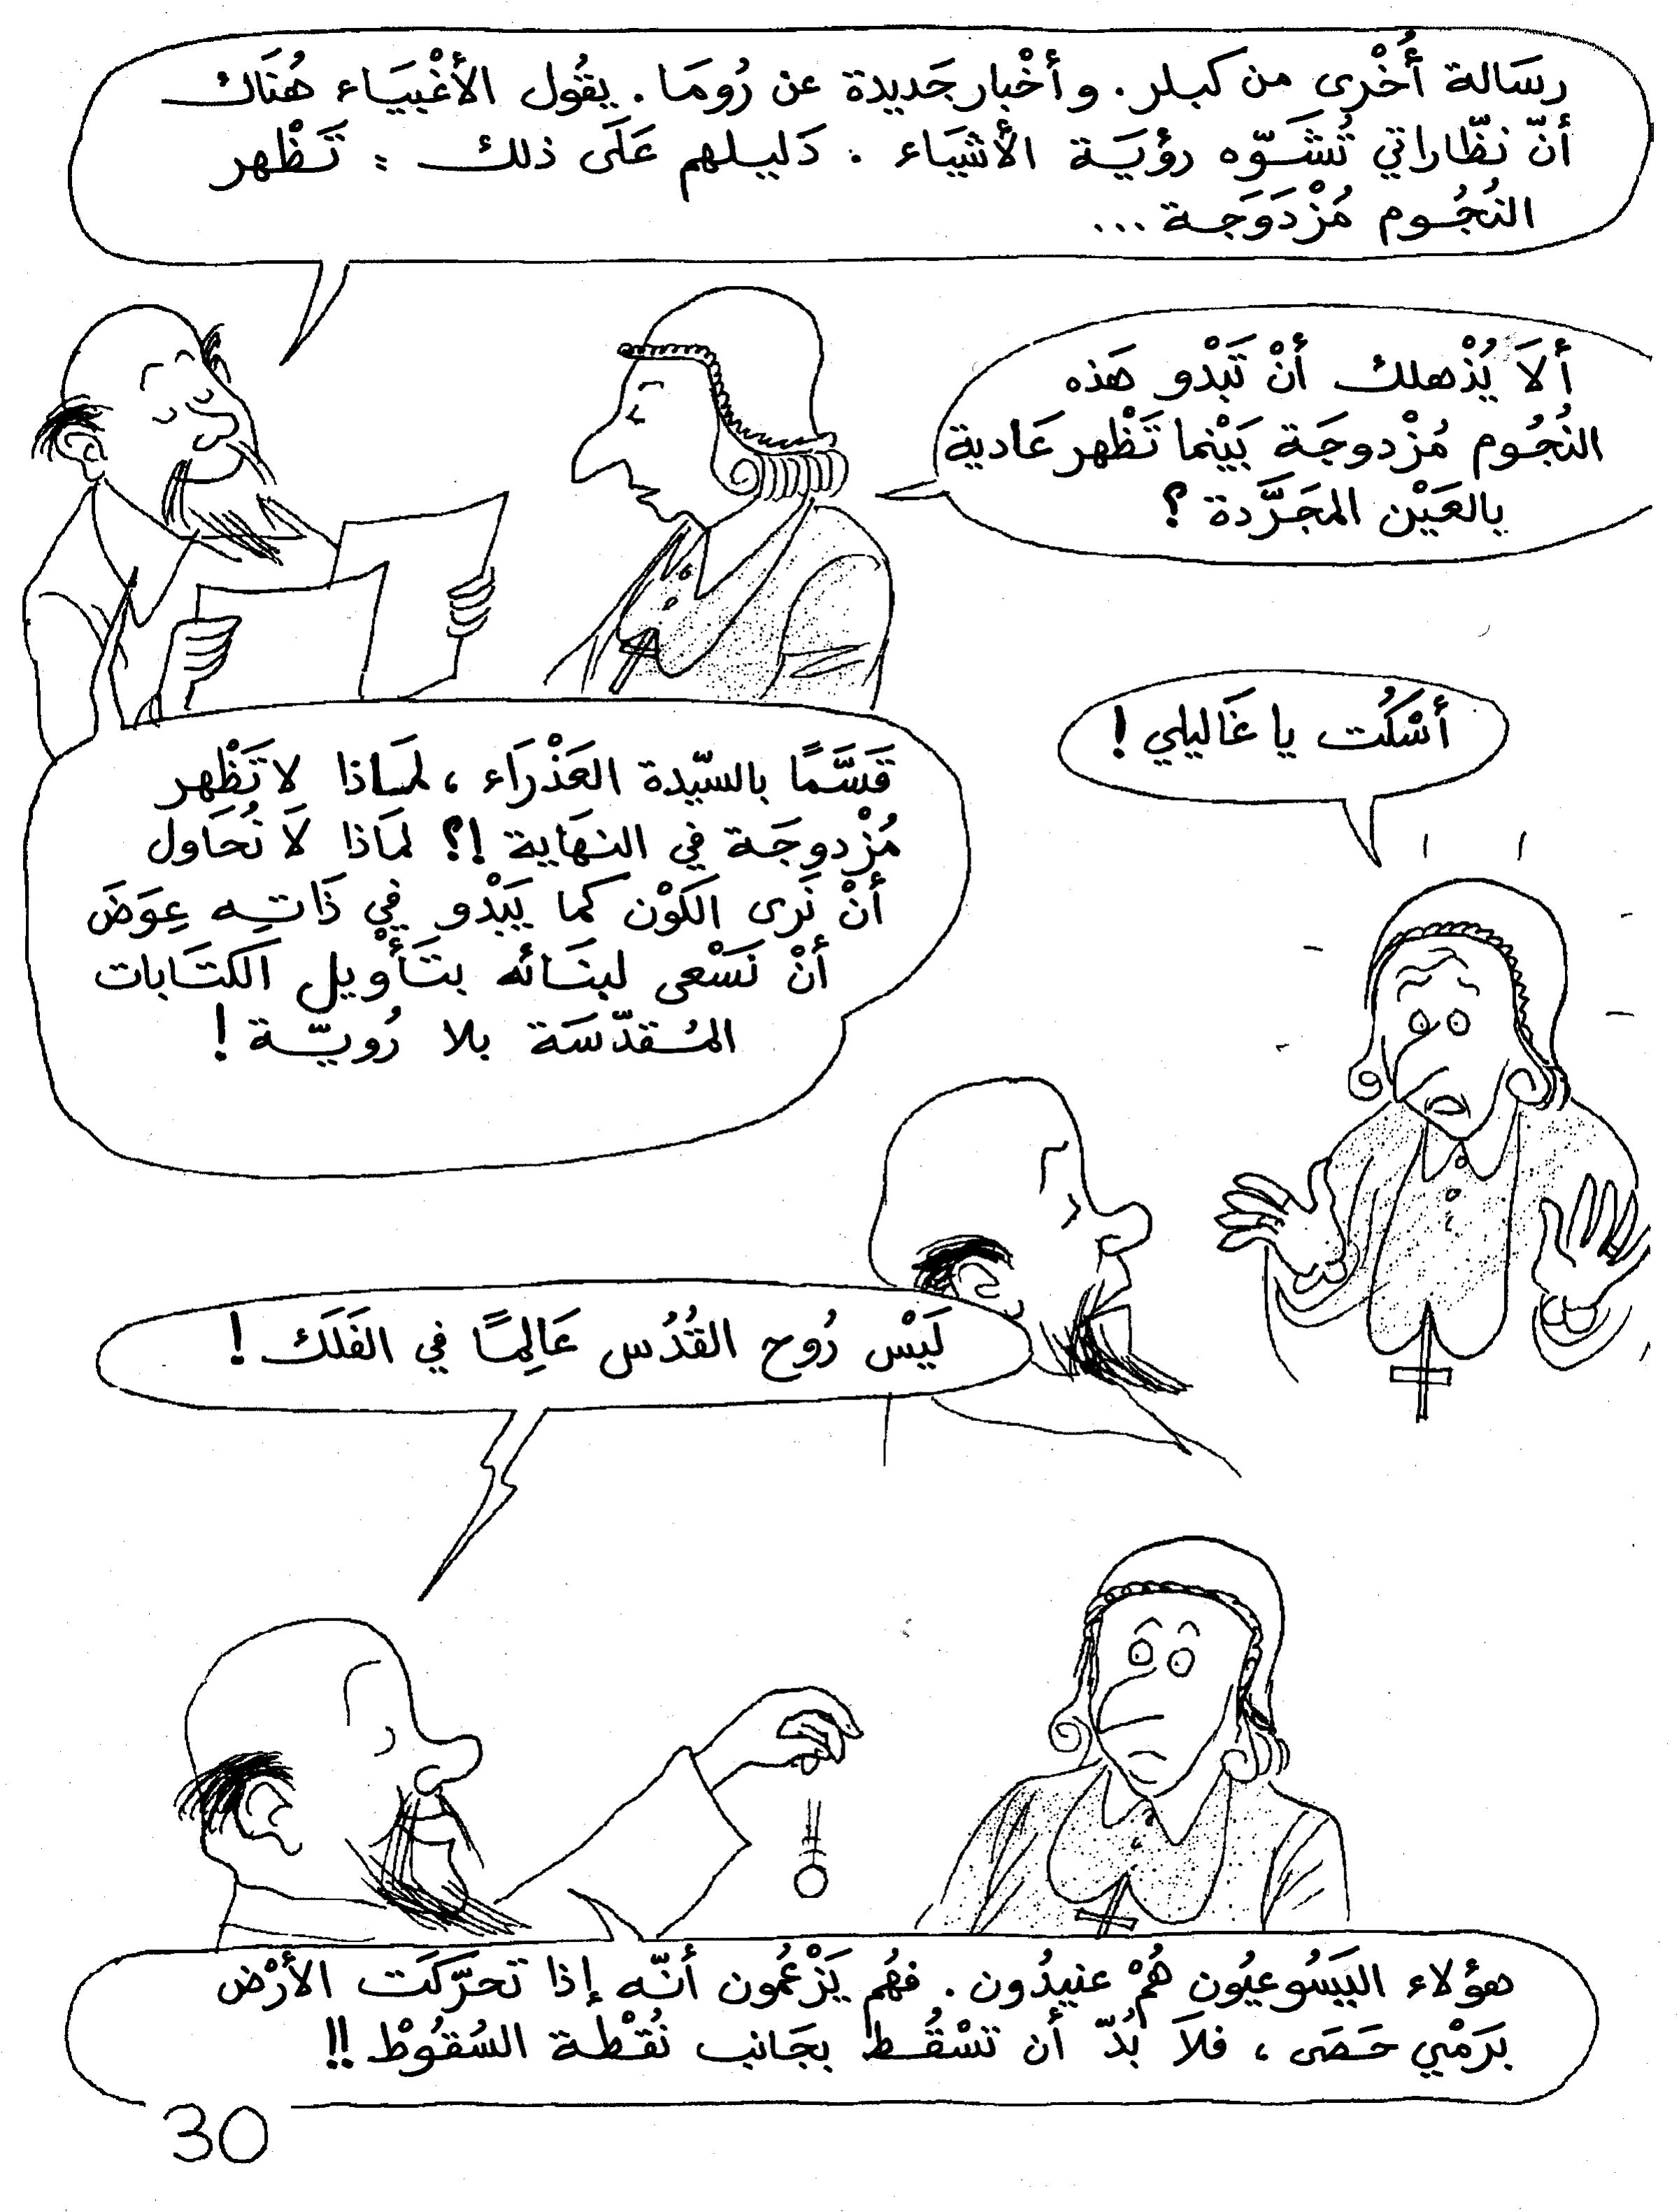 رسَالة أُخْرى من كبلر. وأخْبار جَديدة عن رُومَا. يقُول الأغْبيَاء هُنَاك
أنّ نظّاراتي تُشَـوّه رؤيَـة الأشيَاء . دَليـلهم عَلَى ذلك : تَـظْهر
النُجُـوم مُزْدَوَجَـة ...
ألاَ يُذْهلك أنْ تَبْدو هَذه
النُجُـوم مُزْدوجَـة بَيْنما تَظْهر عَادية
بالعَيْن المجَرَّدة ؟
أسْكُت يا غَاليلي !
قَسَّمًا بالسيّدة العَذْرَاء ، لمَـاذا لا تَظْهر
مُزْدوجَـة في النهَاية !؟ لمَاذا لاَ نُحَاول
أنْ نَرى الكَوْن كما يَبْدو في ذَاتـِه عِوَضَ
أنْ نَسْعى لبنَـائه بتَـأْويل الكتَابات
المُـقدّسَة بلا رُويّـة !
لَيْس رُوح القُدُس عَالِمًا في الفَلَك !
هؤلاء اليَسُوعيُون هُمْ عنيدُون . فهُم يَزْعمُون أنّـه إذا تحرّكَت الأرْض
بَرَمْي حَـصَى ، فلاَ بُدّ أن تسْقُـط بجَانب نُقْطـة السُقُـوْط !!
30